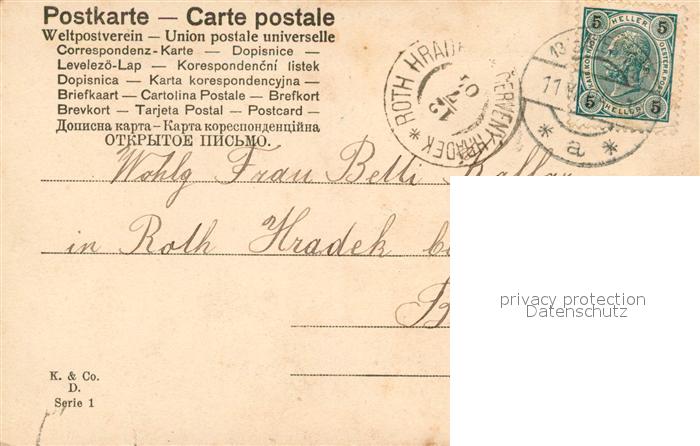 Postkarte — Carte postale
Weltpostverein — Union postale universelle
Correspondenz-Karte — Dopisnice —
Levelező-Lap — Korespondenční lístek
Dopisnica — Karta korespondencyjna —
Briefkaart — Cartolina Postale — Brefkort
Brevkort — Tarjeta Postal — Postcard —
Дописна карта — Карта кореспонденційна
ОТКРЫТОЕ ПИСЬМО.
ROTH HRADEK * ČERVENÝ-HRÁDEK *
5 HELLER 5
5 HELLER 5
* a *
Wohlg Frau Betti
in Roth Hradek
privacy protection
Datenschutz
K. & Co.
D.
Serie 1